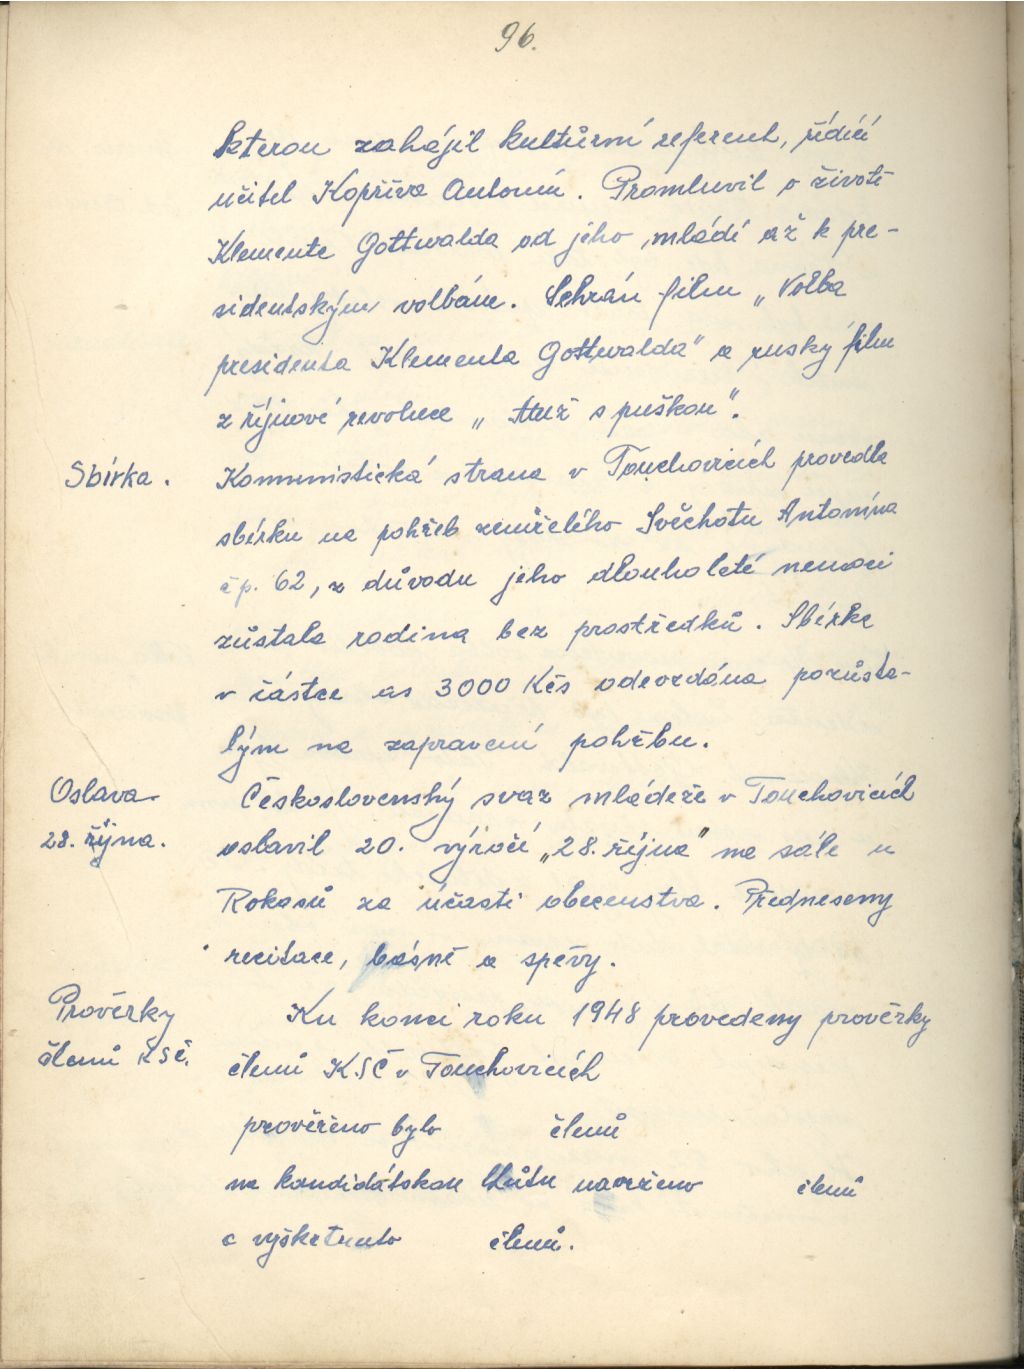 96.
kterou zahájil kultůrní referent, řídící
učitel Kopřiva Antonín. Promluvil o životě
Klemente Gottwalda od jeho mládí až k pre-
sidentským volbám. Sehrán film „Volba
presidenta Klementa Gottwalda" a ruský film
z říjnové revoluce „Muž s puškou".
Sbírka.
Komunistická strana v Touchovicích provedla
sbírku na pohřeb zemřelého Svěchotu Antonína
čp. 62, z důvodu jeho dlouholeté nemoci
zůstala rodina bez prostředků. Sbírka
v částce as 3000 Kčs odevzdána pozůsta-
lým na zapravení pohřbu.
Oslava
28. října.
Československý svaz mládeže v Touchovicích
oslavil 20. výročí „28. října" na sále u
Rokosů za účasti obecenstva. Předneseny
recitace, básně a zpěvy.
Prověrky
členů KSČ.
Ku konci roku 1948 provedeny prověrky
členů KSČ v Touchovicích
prověřeno bylo členů
na kandidátskou lhůtu navrženo členů
a vyškrtnuto členů.